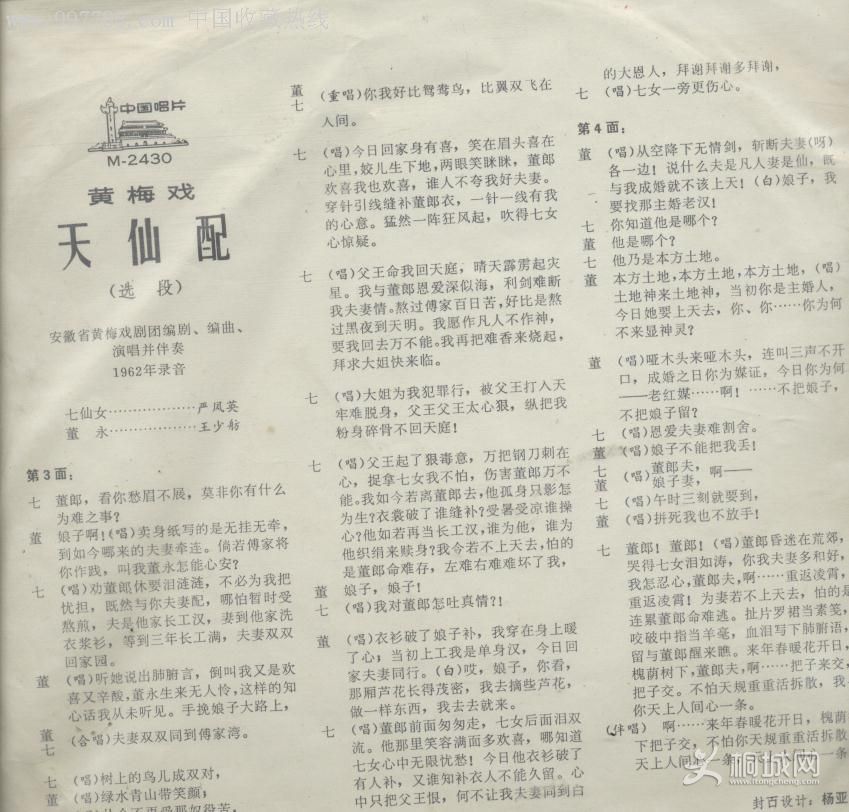 www.997788.com 中国收藏热线
中国唱片
M-2430
黄梅戏
天仙配
(选段)
安徽省黄梅戏剧团编剧、编曲、
演唱并伴奏
1962年录音
七仙女………………严凤英
董 永………………王少舫
第3面:
七 董郎,看你愁眉不展,莫非你有什么
为难之事?
董 娘子啊!(唱)卖身纸写的是无挂无牵,
到如今哪来的夫妻牵连。倘若傅家将
你作践,叫我董永怎能心安?
七 (唱)劝董郎休要泪涟涟,不必为我把
忧担,既然与你夫妻配,哪怕暂时受
熬煎,夫是他家长工汉,妻到他家洗
衣浆衫,等到三年长工满,夫妻双双
回家园。
董 (唱)听她说出肺腑言,倒叫我又是欢
喜又辛酸,董永生来无人怜,这样的知
心话我从未听见。手挽娘子大路上,
董
七 (合唱)夫妻双双同到傅家湾。
七 (唱)树上的鸟儿成双对,
董 (唱)绿水青山带笑颜;
董
七 (重唱)你我好比鸳鸯鸟,比翼双飞在
人间。
七 (唱)今日回家身有喜,笑在眉头喜在
心里,姣儿生下地,两眼笑眯眯,董郎
欢喜我也欢喜,谁人不夸我好夫妻。
穿针引线缝补董郎衣,一针一线有我
的心意。猛然一阵狂风起,吹得七女
心惊疑。
七 (唱)父王命我回天庭,晴天霹雳起灾
星。我与董郎恩爱深似海,利剑难断
我夫妻情。熬过傅家百日苦,好比是熬
过黑夜到天明。我愿作凡人不作神,
要我回去万不能。我再把难香来烧起,
拜求大姐快来临。
七 (唱)大姐为我犯罪行,被父王打入天
牢难脱身,父王父王太心狠,纵把我
粉身碎骨不回天庭!
七 (唱)父王起了狠毒意,万把钢刀刺在
心,捉拿七女我不怕,伤害董郎万不
能。我如今若离董郎去,他孤身只影怎
为生?衣裳破了谁缝补?受暑受凉谁操
心?他如若再当长工汉,谁为他,谁为
他织绢来赎身?我今若不上天去,怕的
是董郎命难存,左难右难难坏了我,
董 娘子,娘子!
七 (唱)我对董郎怎吐真情?!
董 (唱)衣衫破了娘子补,我穿在身上暖
了心;当初上工我是单身汉,今日回
家夫妻同行。(白)哎,娘子,你看,
那厢芦花长得茂密,我去摘些芦花,
做一样东西,我去去就来。
七 (唱)董郎前面匆匆走,七女后面泪双
流。他那里笑容满面多欢喜,哪知道
七女心中无限忧愁!今日他衣衫破了
有人补,又谁知补衣人不能久留。心
中只把父王恨,何不让我夫妻同到白
的大恩人,拜谢拜谢多拜谢,
七 (唱)七女一旁更伤心。
第4面:
董 (唱)从空降下无情剑,斩断夫妻(呀)
各一边!说什么夫是凡人妻是仙,既
与我成婚就不该上天!(白)娘子,我
要找那主婚老汉!
七 你知道他是哪个?
董 他是哪个?
七 他乃是本方土地。
董 本方土地,本方土地,本方土地,(唱)
土地神来土地神,当初你是主婚人,
今日她要上天去,你、你……你为何
不来显神灵?
董 (唱)哑木头来哑木头,连叫三声不开
口,成婚之日你为媒证,今日你为何
——老红媒……啊!……不把娘子,
不把娘子留?
七 (唱)恩爱夫妻难割舍。
董 (唱)娘子不能把我丢!
七
董 (唱) 董郎夫,
娘子妻,啊——
七 (唱)午时三刻就要到,
董 (唱)拼死我也不放手!
七 董郎!董郎!(唱)董郎昏迷在荒郊,
哭得七女泪如涛,你我夫妻多和好,
我怎忍心,董郎夫,啊……重返凌霄,
重返凌霄!为妻若不上天去,怕的是
连累董郎命难逃。扯片罗裙当素笺,
咬破中指当羊毫,血泪写下肺腑语,
留与董郎醒来瞧。来年春暖花开日,
槐荫树下,董郎夫,啊……把子来交,
把子交。不怕天规重重活拆散,我
你天上人间心一条。
(伴唱) 啊……来年春暖花开日,槐荫
下把子交,不怕你天规重重活拆散
天上人间心一条
桐城网
www.itongcheng.com
封百设计:杨亚